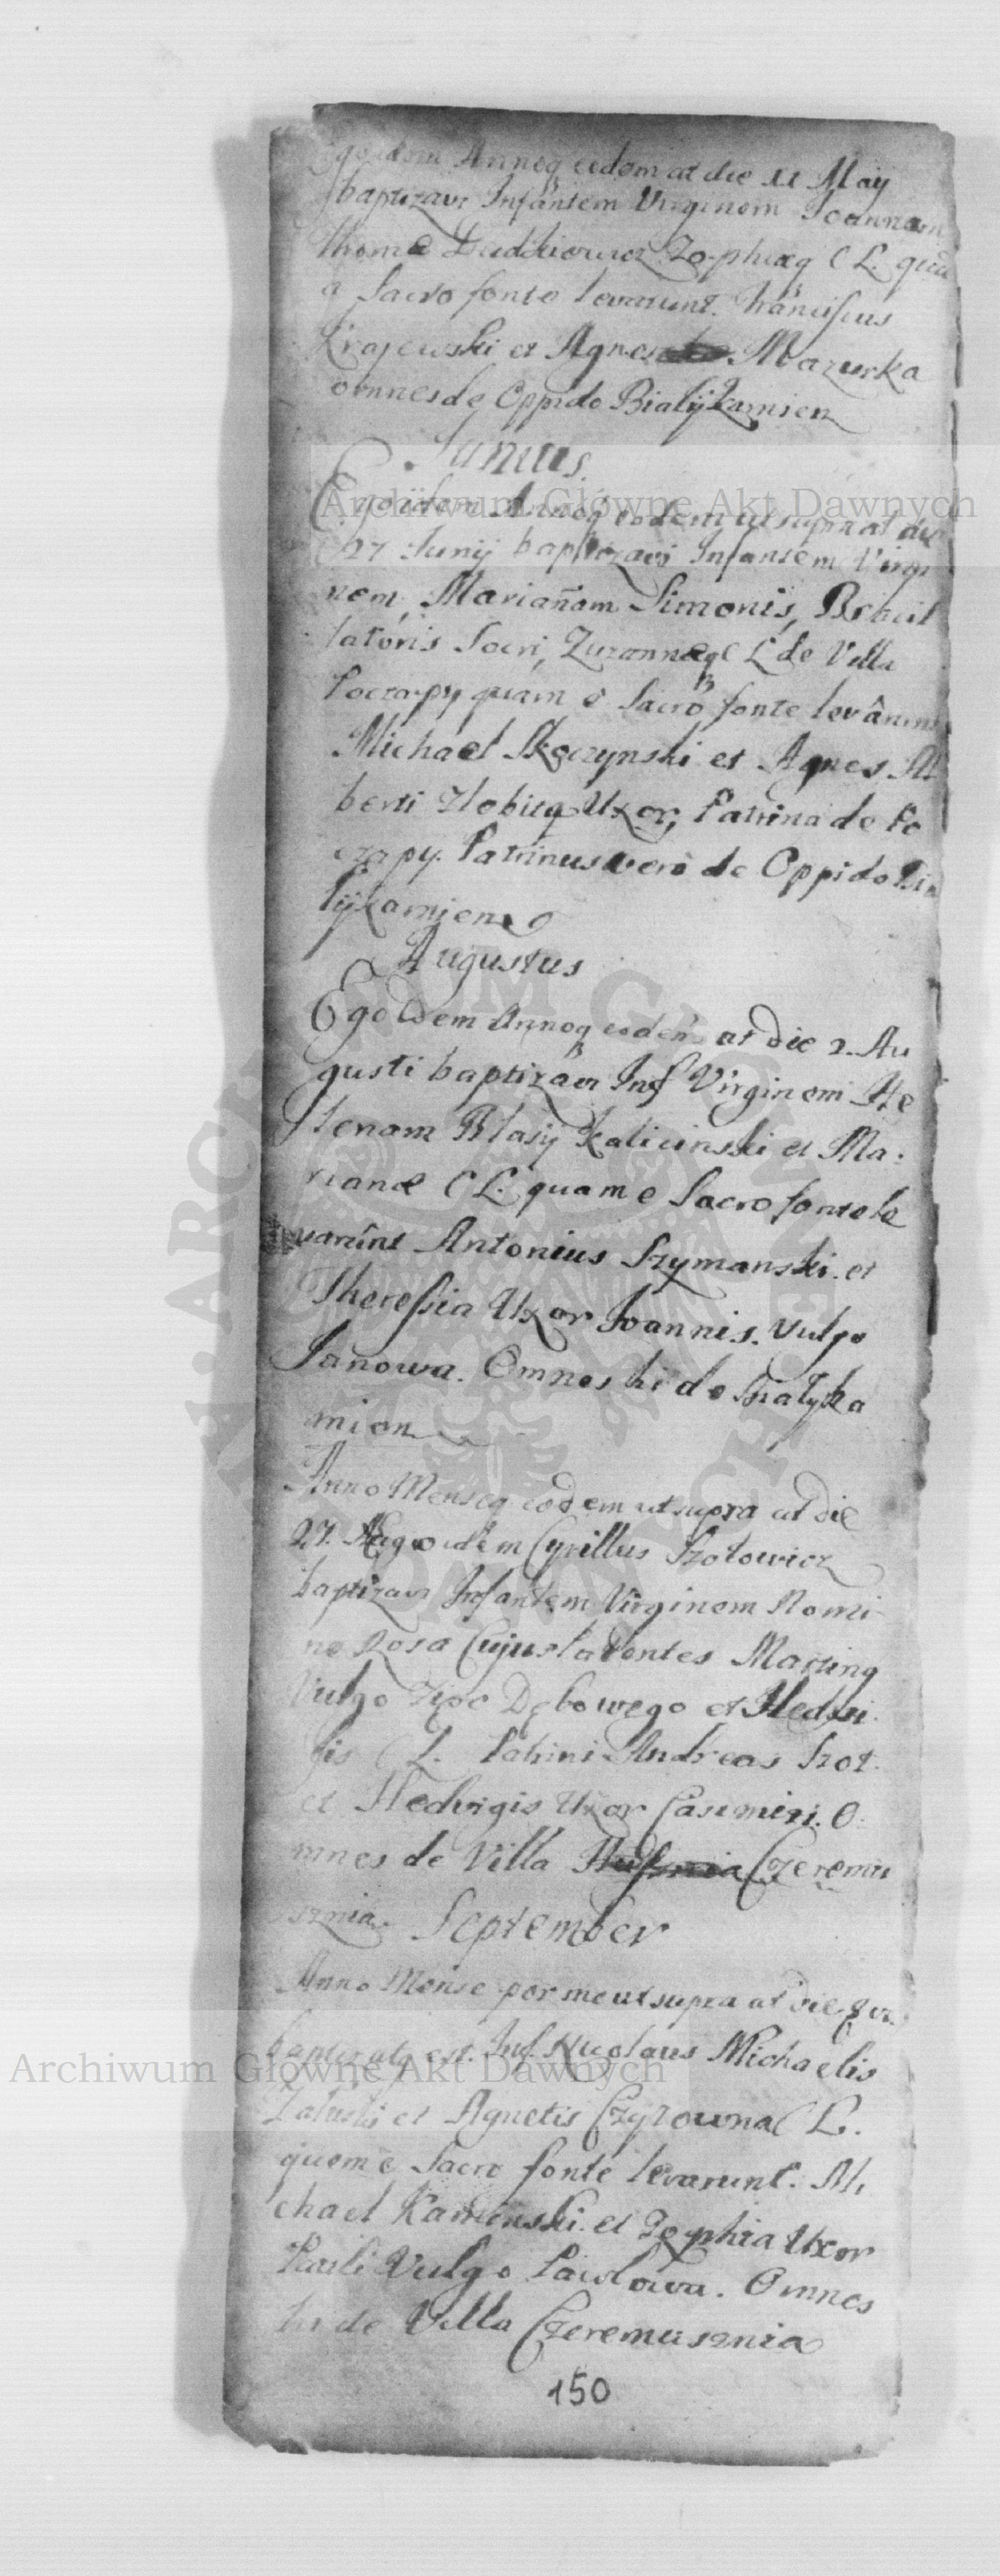 Ego idem Annoq eodem at die 11 Maij
baptizavi Infantem Virginem Joannam
Thomæ Dudkiewicz Zophiæq C L. quã
a Sacro fonte levarunt. Franciscus
Krajewski et Agnes Mazurka
omnes de Oppido Bialÿkamien
Junius
Ego idem Annoq eodem ut supra at die
27 Junij baptizavi Infantem Virgi
nem, Mariañam Simonis, Braciī
latoris Socri, Zuzannæq C L de Villa
Poczapy quam e Sacro fonte levârunt
Michael Skoczynski et Agnes Al
berti Uxor, Patrina de Po
czapy. Patrinus vero de Oppido Bia
lÿkamien
Augustus
Ego idem Annoq eodem at die 2. Au
gusti baptizavi Inf Virginem He
lenam Blasÿ Kalicinski et Ma
rianæ C L. quam e Sacro fonte le
varunt Antonius Szymanski et
Theressia Uxor Joannis. Vulgo
Janowa. Omnes hi de Bialyka
mien
Anno Menseq eodem ut supra at die
27. Ego idem Cyrillus Szolowicz
baptizavi Infantem Virginem Nomi
ne Rosa Cujus Parentes Martinq
Vulgo Debowego et Hedvi
gis C L. Patrini Andreas Szot.
et Hedvigis Uxor Casimiri. O
mnes de Villa Czeremu
sznia September
Anno Mense per me ut supra at die
baptizatq est. Inf. Nicolaus Michaelis
Zaluski et Agnetis Czyzowna C L.
quem e Sacro fonte levarunt. Mi
chael Kaminski et Zophia Uxor
Pauli Vulgo Pawlowa. Omnes
hi de Villa Czeremusznia
150
Archiwum Główne Akt Dawnych
Archiwum Główne Akt Dawnych